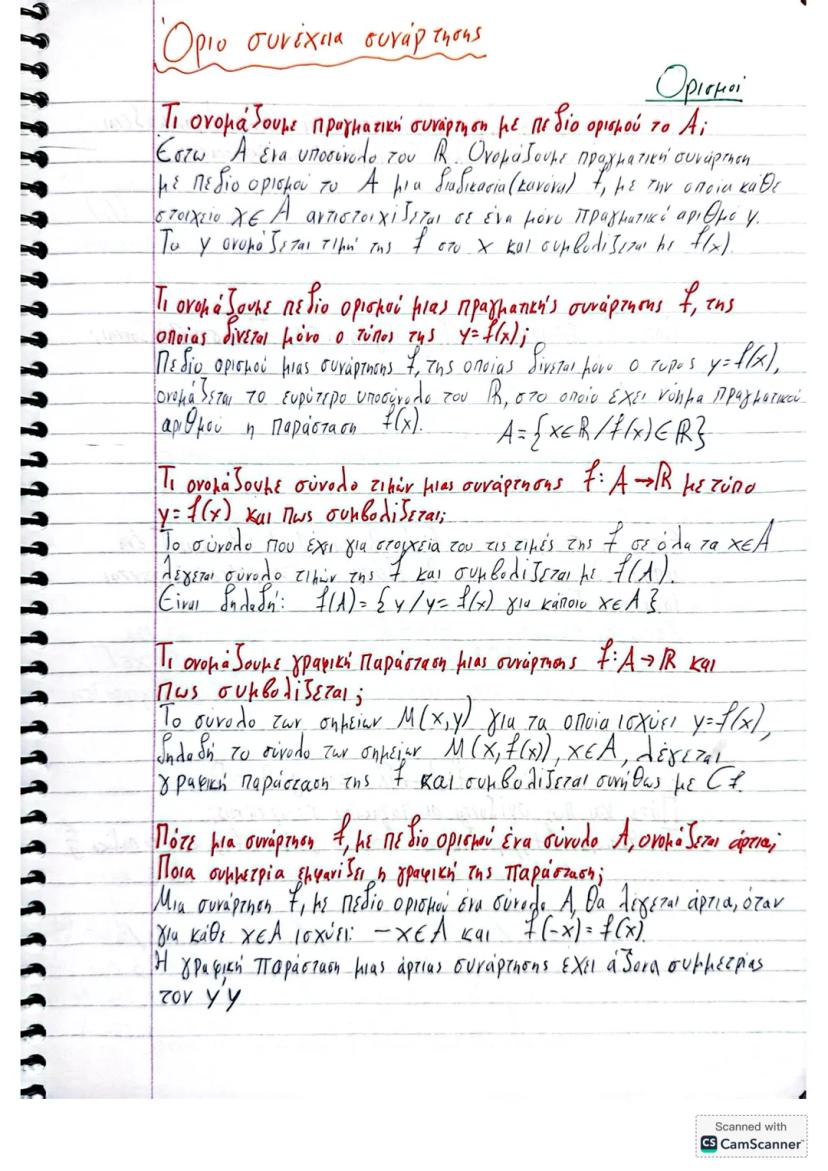 Όριο συνέχεια συνάρτησης
Ορισμοί
Τι ονομάζουμε πραγματική συνάρτηση με πεδίο ορισμού το Α;
Έστω Α ένα υποσύνολο του ℝ. Ονομάζουμε πραγματική συνάρτηση
με πεδίο ορισμού το Α μια διαδικασία (κανόνα) f, με την οποία κάθε
στοιχείο x∈A αντιστοιχίζεται σε ένα μόνο πραγματικό αριθμό y.
Το y ονομάζεται τιμή της f στο x και συμβολίζεται με f(x).
Τι ονομάζουμε πεδίο ορισμού μιας πραγματικής συνάρτησης f, της
οποίας δίνεται μόνο ο τύπος της y=f(x);
Πεδίο ορισμού μιας συνάρτησης f, της οποίας δίνεται μονο ο τυπος y=f(x),
ονομάζεται το ευρύτερο υποσύνολο του ℝ, στο οποίο έχει νόημα πραγματικού
αριθμού η παράσταση f(x). A={x∈ℝ/f(x)∈ℝ}
Τι ονομάζουμε σύνολο τιμών μιας συνάρτησης f: A→ℝ με τύπο
y=f(x) και πως συμβολίζεται;
Το σύνολο που έχει για στοιχεία του τις τιμές της f σε όλα τα x∈A
λέγεται σύνολο τιμών της f και συμβολίζεται με f(A).
Είναι δηλαδή: f(A)={y/y=f(x) για κάποιο x∈A}.
Τι ονομάζουμε γραφική παράσταση μιας συνάρτησης f:A→ℝ και
πως συμβολίζεται;
Το σύνολο των σημείων M(x,y) για τα οποία ισχύει y=f(x),
δηλαδή το σύνολο των σημείων M(x,f(x)), x∈A, λέγεται
γραφική παράσταση της f και συμβολίζεται συνήθως με Cf.
Πότε μια συνάρτηση f, με πεδίο ορισμού ένα σύνολο Α, ονομάζεται άρτια;
Ποια συμμετρία εμφανίζει η γραφική της παράσταση;
Μια συνάρτηση f, με πεδίο ορισμού ένα σύνολο Α, θα λέγεται άρτια, όταν
για κάθε x∈A ισχύει: -x∈A και f(-x)=f(x).
Η γραφική παράσταση μιας άρτιας συνάρτησης έχει άξονα συμμετρίας
τον y'y
Scanned with
CS CamScanner